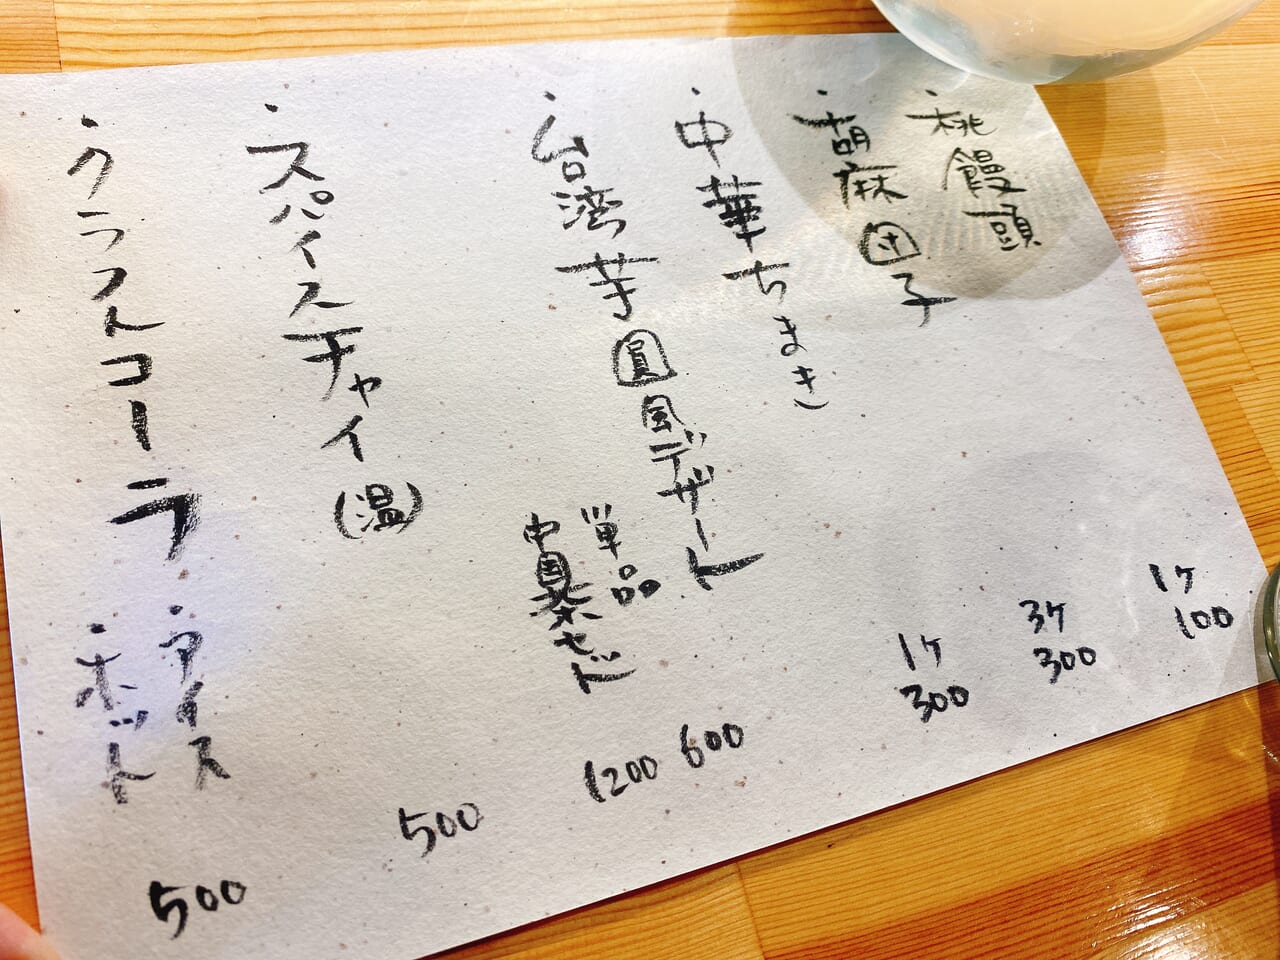 ・桃饅頭 1ケ 100
・胡麻団子 3ケ 300
・中華ちまき 1ケ 300
・台湾芋圓風デザート
単品 600
中国茶セット 1200
・スパイスチャイ(温) 500
・クラフトコーラ
・アイス
・ホット
500